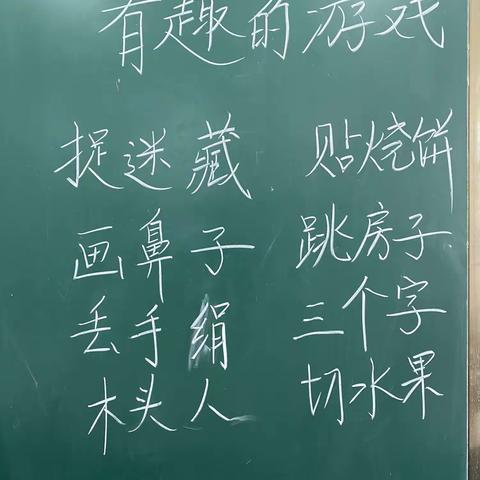 有趣的游戏
捉迷藏 贴烧饼
画鼻子 跳房子
丢手绢 三个字
木头人 切水果